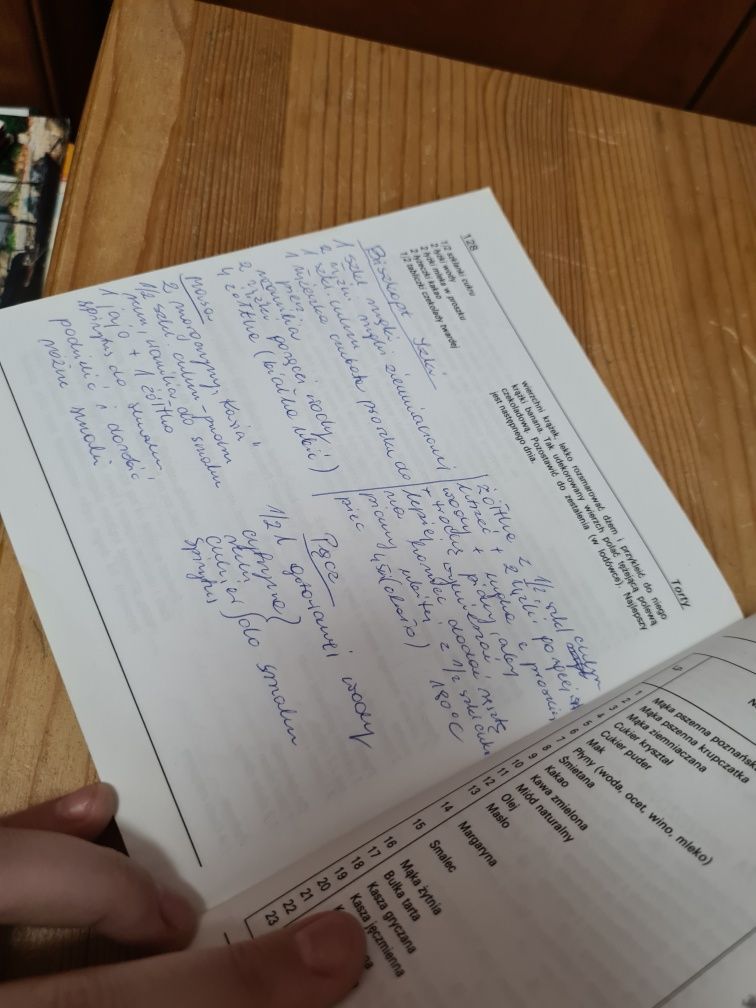 128
Torty
1/2 szklanki cukru
2 łyżki wody
2 łyżki mleka w proszku
2 łyżeczki kakao
1/2 tabliczki czekolady twardej
wierzchni krążek, lekko rozsmarować dżem i przykleić do niego
krążki banana. Tak udekorowany wierzch polać tężejącą polewą
czekoladową. Pozostawić do zestalenia (w lodówce). Najlepszy
jest następnego dnia.
Biszkopt
1 szkl mąki
2 łyżki mąki ziemniaczanej
1 szkl. cukru
1 łyżeczka czubata proszku do
piecz.
2 łyżki gorącej wody
4 żółtka (białka ubić)
żółtka z 1/2 szkl cukru
utrzeć + 2 łyżki gorącej
wody + mąka z proszkiem
+ trochę piany, aby
lepiej wymieszać, resztę
na końcu dodać
piany ubitej z 1/2 szkl cukru
piec 180°C
masa
2 margaryny „Kasia"
1/2 szkl cukru-pudru
rum, wanilia do smaku
1 jajo + 1 żółtko
spirytus do smaku
i dodać
Poncz
1/2 l gotowanej wody
cytryna
rum
cukier
spirytus
do smaku
1 Mąka pszenna poznańska
2 Mąka pszenna krupczatka
3 Mąka ziemniaczana
4 Cukier kryształ
5 Cukier puder
6 Mak
7 Płyny (woda, ocet, wino, mleko)
8 Śmietana
9 Kakao
10 Kawa zmielona
11 Miód naturalny
12 Olej
13 Masło
14 Margaryna
15 Smalec
16 Mąka żytnia
17 Bułka tarta
18 Kasza gryczana
19 Kasza jęczmienna
20
21
22
23